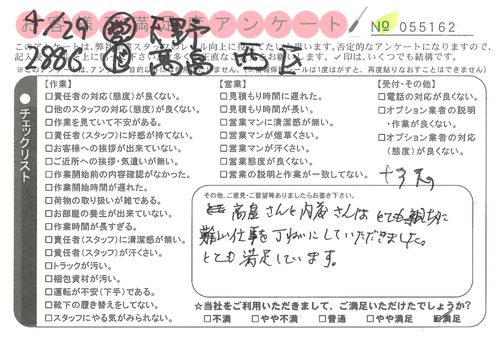 お客様満足度アンケート
№ 055162
4/29 天野
2886 高富 西区
このアンケートは、弊社
※このアンケート
チェックリスト
【作業】
□責任者の対応(態度)が良くない。
□他のスタッフの対応(態度)が良くない。
□作業を見ていて不安がある。
□責任者(スタッフ)に好感が持てない。
□お客様への挨拶が出来ていない。
□ご近所への挨拶・気遣いが無い。
□作業開始前の内容確認がなかった。
□作業開始時間が遅れた。
□荷物の取り扱いが雑である。
□お部屋の養生が出来ていない。
□作業時間が長すぎる。
□責任者(スタッフ)に清潔感が無い。
□責任者(スタッフ)が汗くさい。
□トラックが汚い。
□梱包資材が汚い。
□運転が不安(下手)である。
□靴下の履き替えをしてない。
□スタッフにやる気がみられない。
【営業】
□見積もり時間に遅れた。
□見積もり時間が長い。
□営業マンに清潔感が無い。
□営業マンが煙草くさい。
□営業マンが汗くさい。
□営業態度が良くない。
□営業の説明と作業が一致してない。
【受付・その他】
□電話の対応が良くない。
□オプション業者の説明
・作業が良くない。
□オプション業者の対応
(態度)が良くない。
その他、ご意見・ご要望等ありましたらお書き下さい。
さんと内斉さんは とても親切に
難しい仕事を丁ねいにしていただきました。
とても満足しています。
☆当社をご利用いただきまして、ご満足いただけたでしょうか?
□不満 □やや不満 □普通 □やや満足 ☑満足